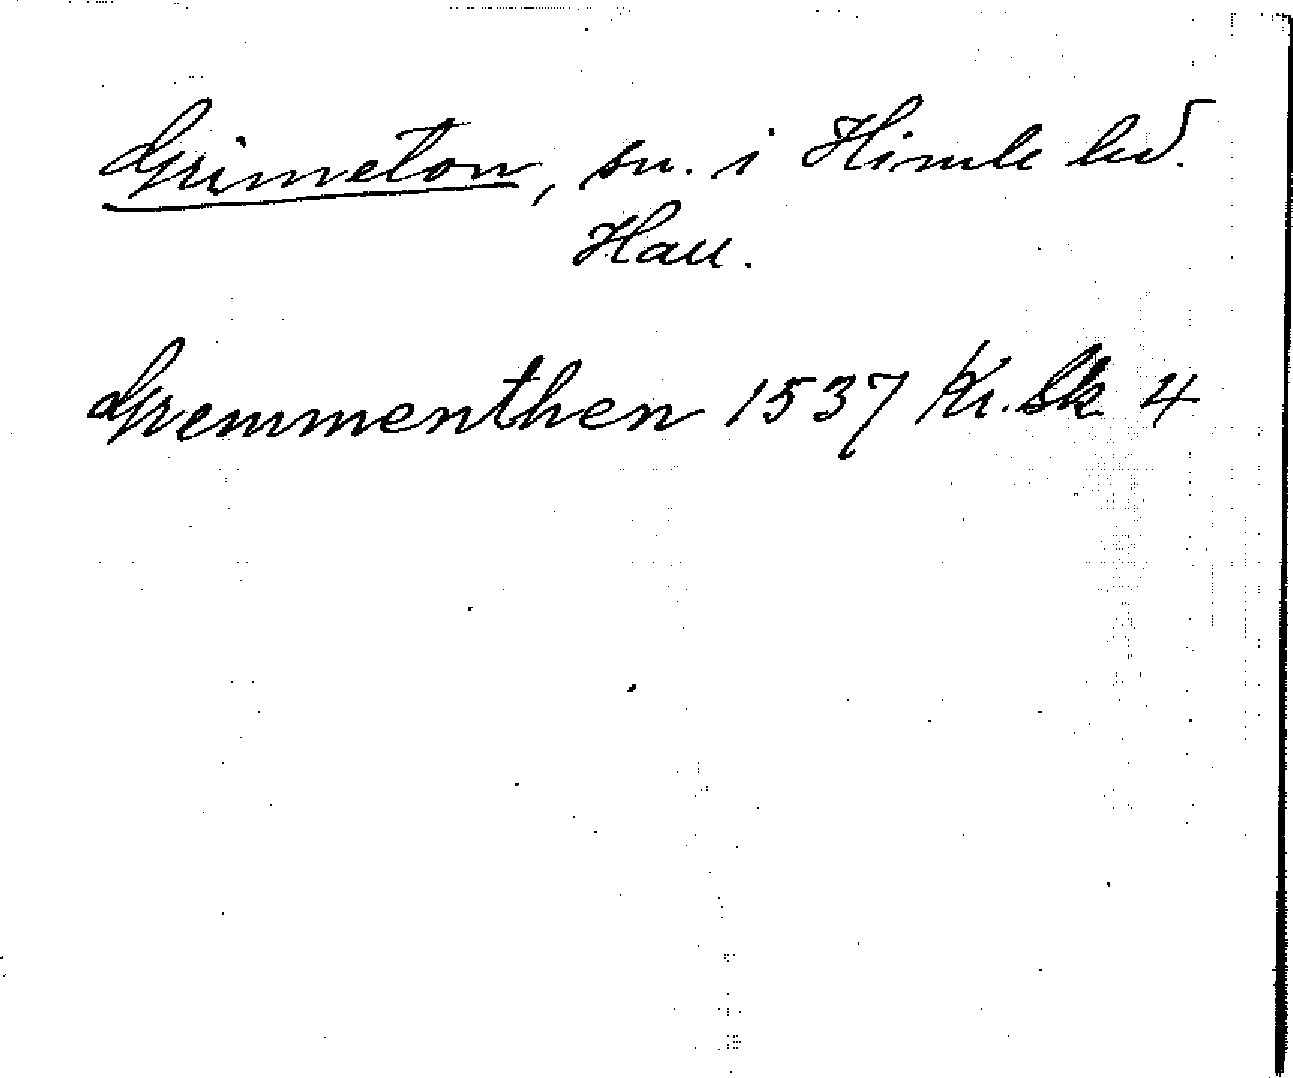 Grimeton, sn. i Himle hd.
Hall.
Gremmenthen 1537 Kr. Sk 4